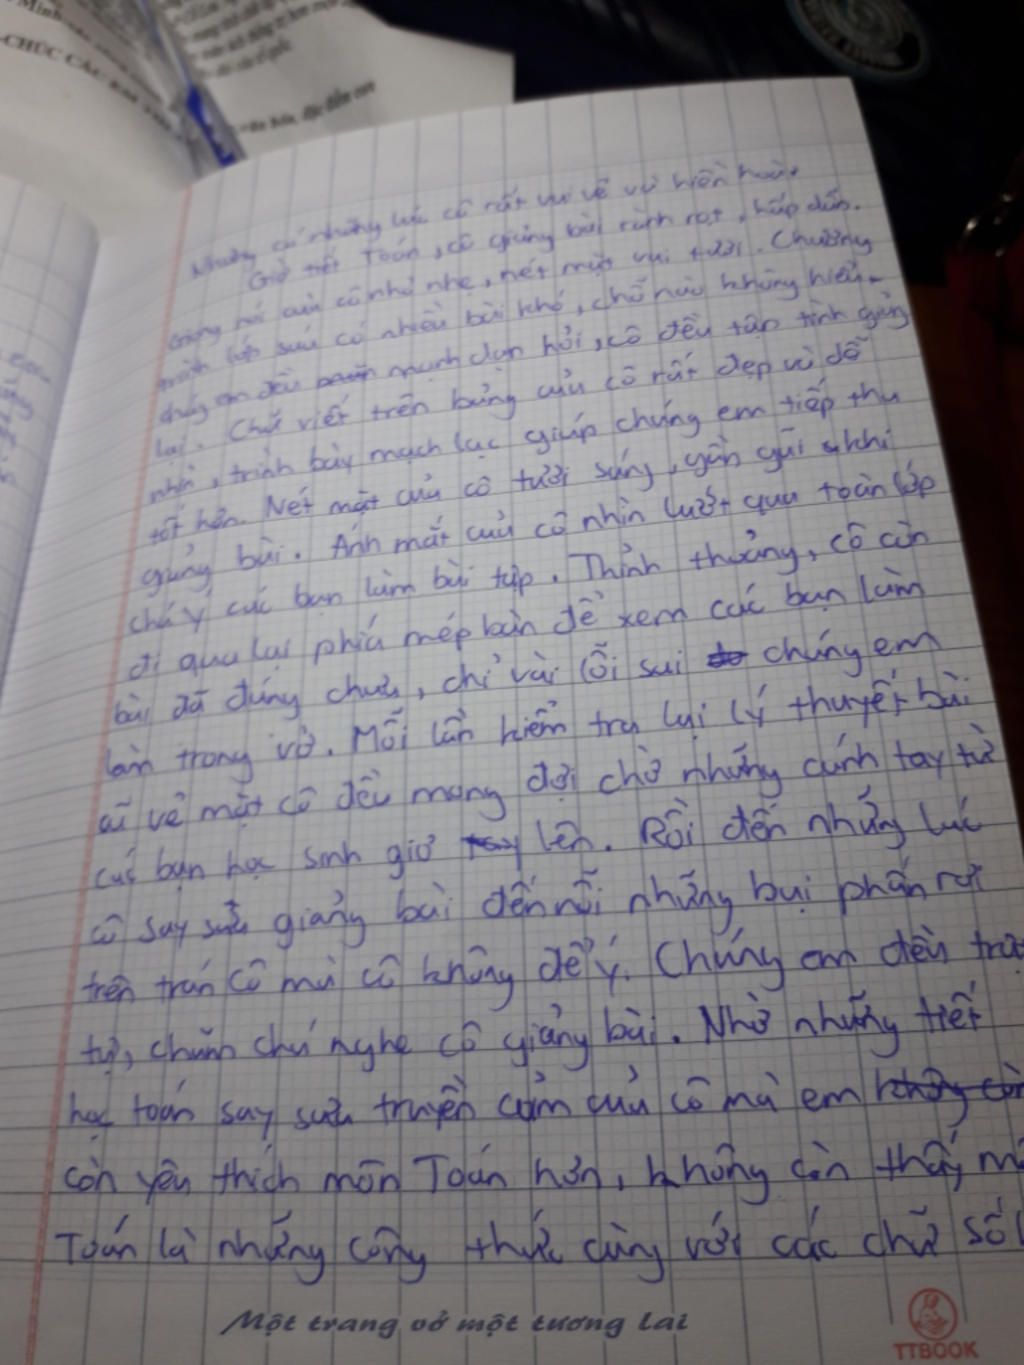 Minh
CHÚC CÁC EM
độc đáo
Nhưng có những lúc cô rất vui vẻ và hiền hoà.
Giờ tiết Toán, cô giảng bài rành rọt, hấp dẫn.
Giọng nói của cô nhỏ nhẹ, nét mặt vui tươi. Chương
trình lớp sáu có nhiều bài khó, chỗ nào không hiểu,
chúng em đều mạnh dạn hỏi, cô đều tận tình giảng
lại. Chữ viết trên bảng của cô rất đẹp và dễ
nhìn, trình bày mạch lạc giúp chúng em tiếp thu
tốt hơn. Nét mặt của cô tươi sáng, gần gũi khi
giảng bài. Ánh mắt của cô nhìn lướt qua toàn lớp
chú ý các bạn làm bài tập. Thỉnh thoảng, cô còn
đi qua lại phía mép bàn để xem các bạn làm
bài đã đúng chưa, chỉ vài lỗi sai chúng em
làm trong vở. Mỗi lần kiểm tra lại lý thuyết bài
cũ vẻ mặt cô đều mong đợi chờ những cánh tay từ
các bạn học sinh giơ lên. Rồi đến những lúc
cô say sưa giảng bài đến nỗi những bụi phấn rơi
trên trán cô mà cô không để ý. Chúng em đều trật
tự, chăm chú nghe cô giảng bài. Nhờ những tiết
học toán say sưa truyền cảm của cô mà em không còn
còn yêu thích môn Toán hơn, không còn thấy
Toán là những công thức cùng với các chữ số
Một trang vở một tương lai
TTBOOK